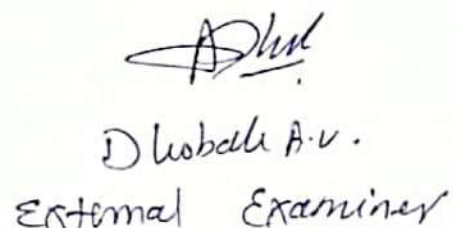 Dhobale A.V.
External Examiner